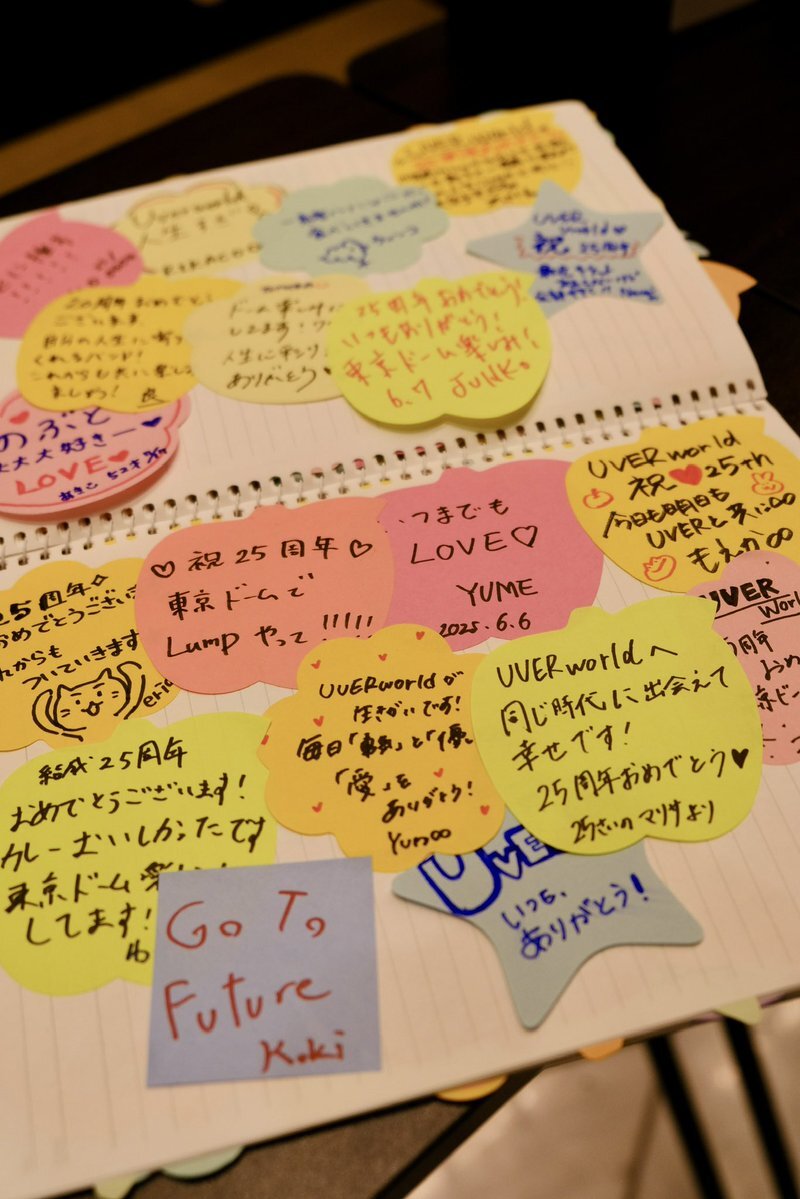 UVERworld
Uverworld
人生
RIKACO
UVER
world
祝 25周年
20周年おめでとう
ございます
自分の人生に寄っ
くれるバンド!
これからも共に楽し
ましょう!
ドーム楽しみに
してます!
人生に
ありがとう
25周年おめでとう!
いつもありがとう!
東京ドーム楽しむれ!
6.7 JUNKO
のぶと
大大大好きー♥
LOVE♥
UVERworld
祝♥25th
今日も明日も
UVERと共に∞
もえか∞
いつまでも
LOVE♡
YUME
2025.6.6
♡祝25周年♡
東京ドームで
Lumpやって!!!!!
25周年
おめでとうござい
れからも
ついていきます
eri
UVER
World
5周年
UVERworldへ
同じ時代に出会えて
幸せです!
25周年おめでとう♥
25さいのマリサより
UVERworldが
生きがいです!
毎日「勇気」と「優
「愛」を
ありがとう!
Yum∞
結成25周年
おめでとうございます!
カレーおいしかったです
東京ドーム楽し
してます!
UVE
いつも、
ありがとう!
Go To
Future
Koki